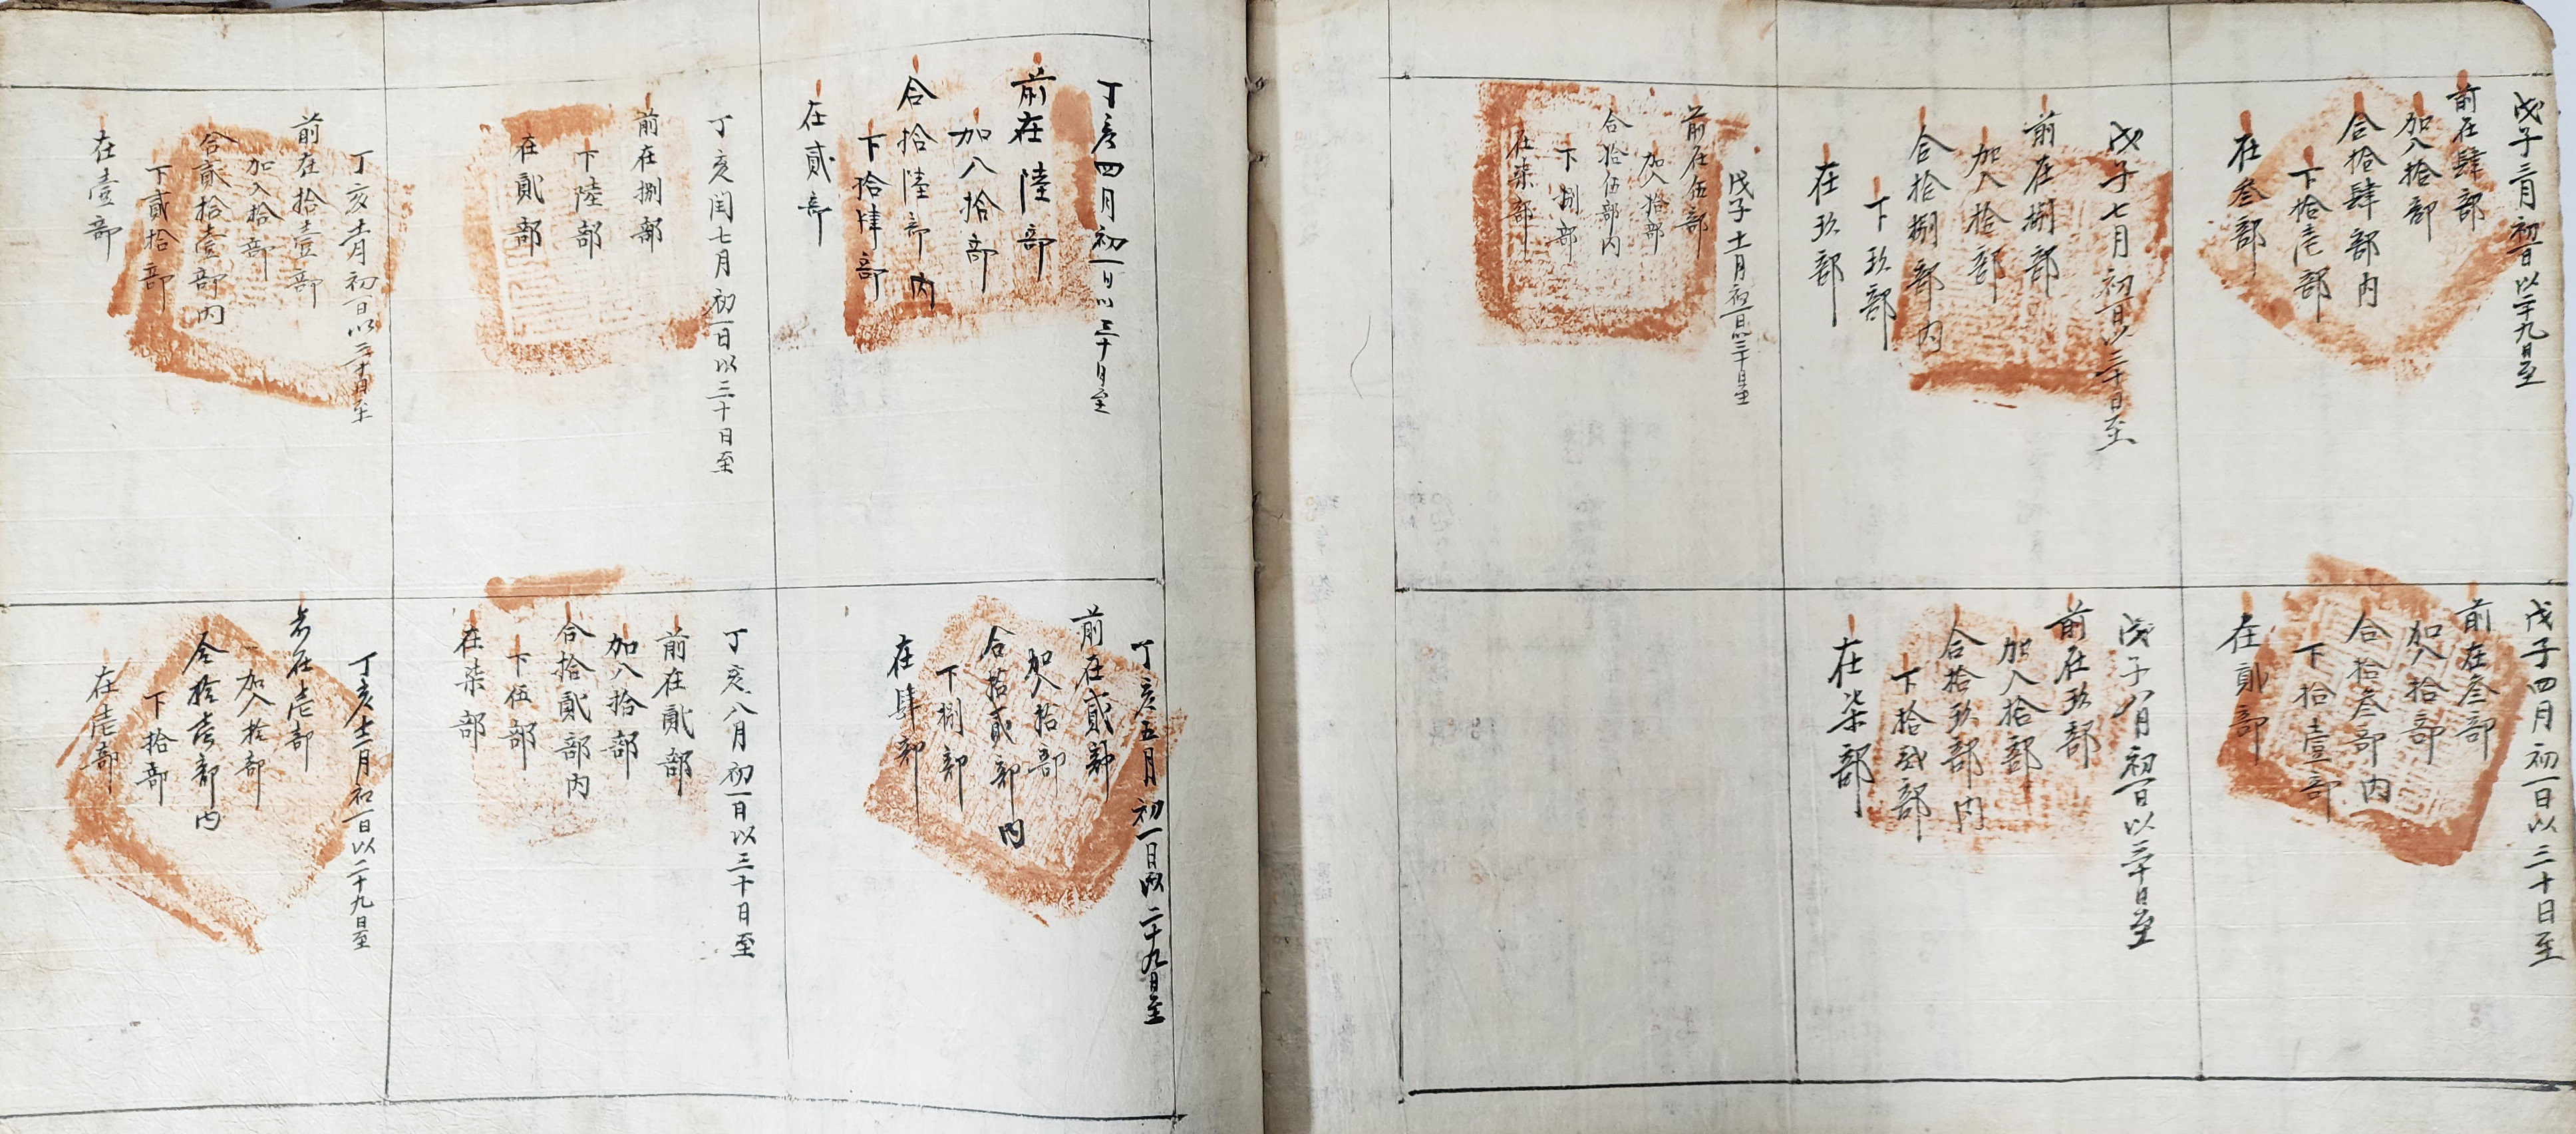 戊子三月初一日以二十九日至
前在肆部
加入拾部
合拾肆部內
下拾壱部
在叁部
戊子七月初一日以三十日至
前在捌部
加入拾部
合拾捌部內
下玖部
在玖部
戊子十一月初一日以三十日至
前在伍部
加入拾部
合拾伍部內
下捌部
在柒部
戊子四月初一日以三十日至
前在叁部
加入拾部
合拾叁部內
下拾壹部
在貳部
戊子八月初一日以三十日至
前在玖部
加入拾部
合拾玖部內
下拾貳部
在柒部
丁亥四月初一日以三十日至
前在陸部
加入拾部
合拾陸部內
下拾肆部
在貳部
丁亥閏七月初一日以三十日至
前在捌部
下陸部
在貳部
丁亥十一月初一日以三十日至
前在拾壹部
加入拾部
合貳拾壹部內
下貳拾部
在壹部
丁亥五月初一日以二十九日至
前在貳部
加入拾部
合拾貳部內
下捌部
在肆部
丁亥八月初一日以三十日至
前在貳部
加入拾部
合拾貳部內
下伍部
在柒部
丁亥十二月初一日以二十九日至
前在壱部
加入拾部
合拾壱部內
下拾部
在壱部